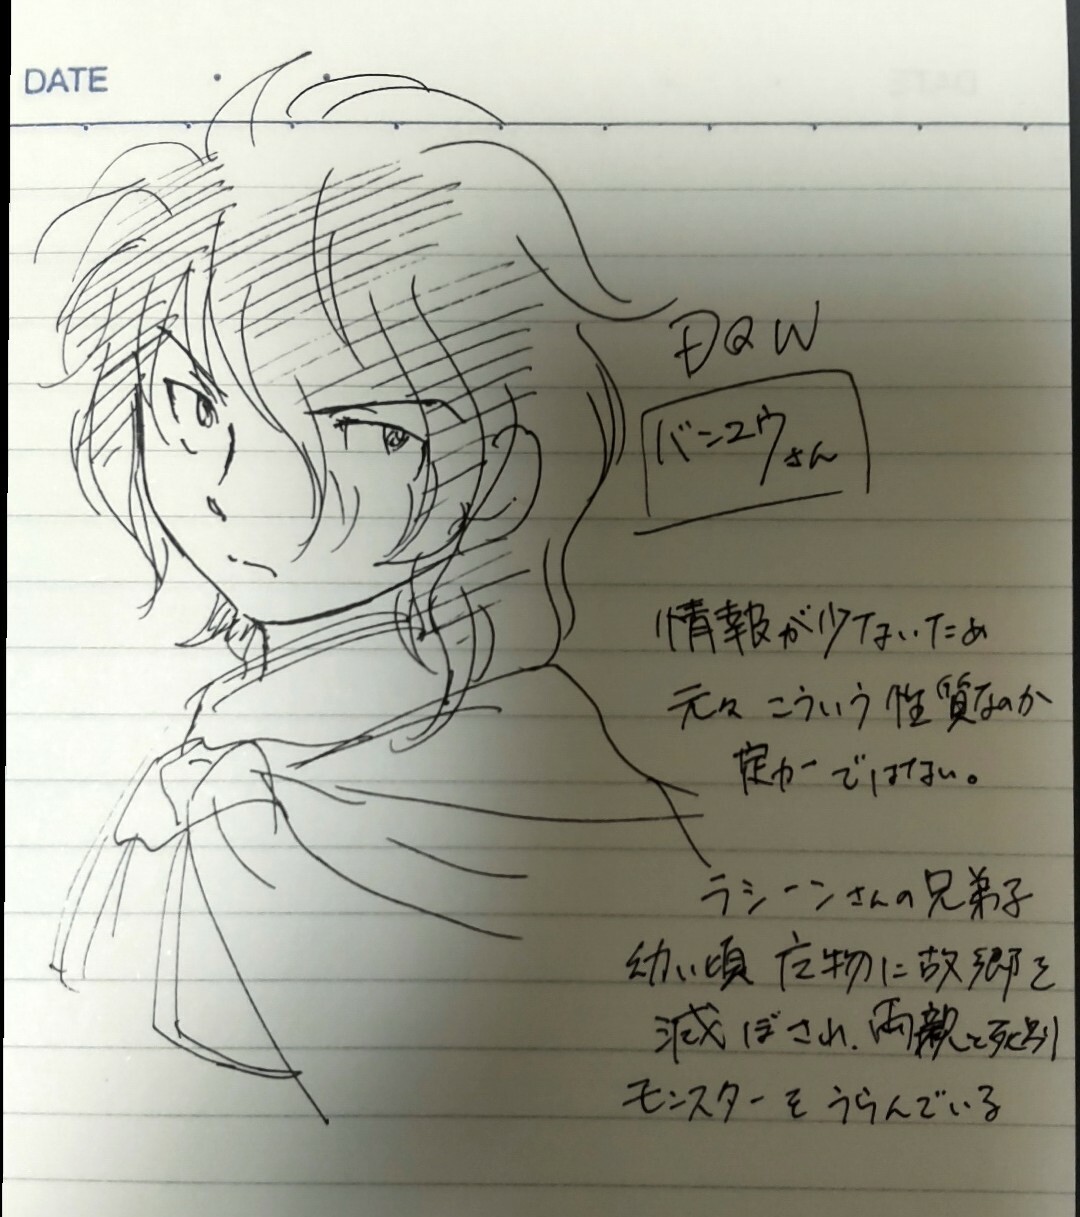 DATE
DQW
バンユウさん
情報が少ないため
元々こういう性質なのか
定かではない。
ラシーンさんの兄弟子
幼い頃 広物に故郷を
滅ぼされ、両親と死別
モンスターをうらんでいる